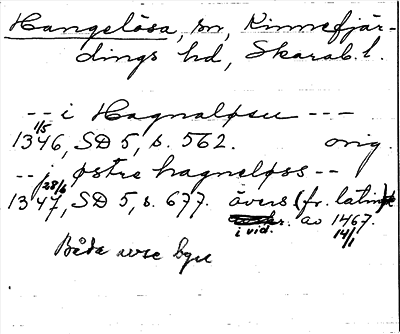 Hangelösa, sn, Kinnefjär-
dings hd, Skarab. l.
-- i Hagnaløsu ---
1/5
1346, SD 5, s. 562. orig.
-- j østre hagneløss --
28/6
1347, SD 5, s. 677. övers (fr. latin)
i vid. av 1467.
14/1
Båda avse byn